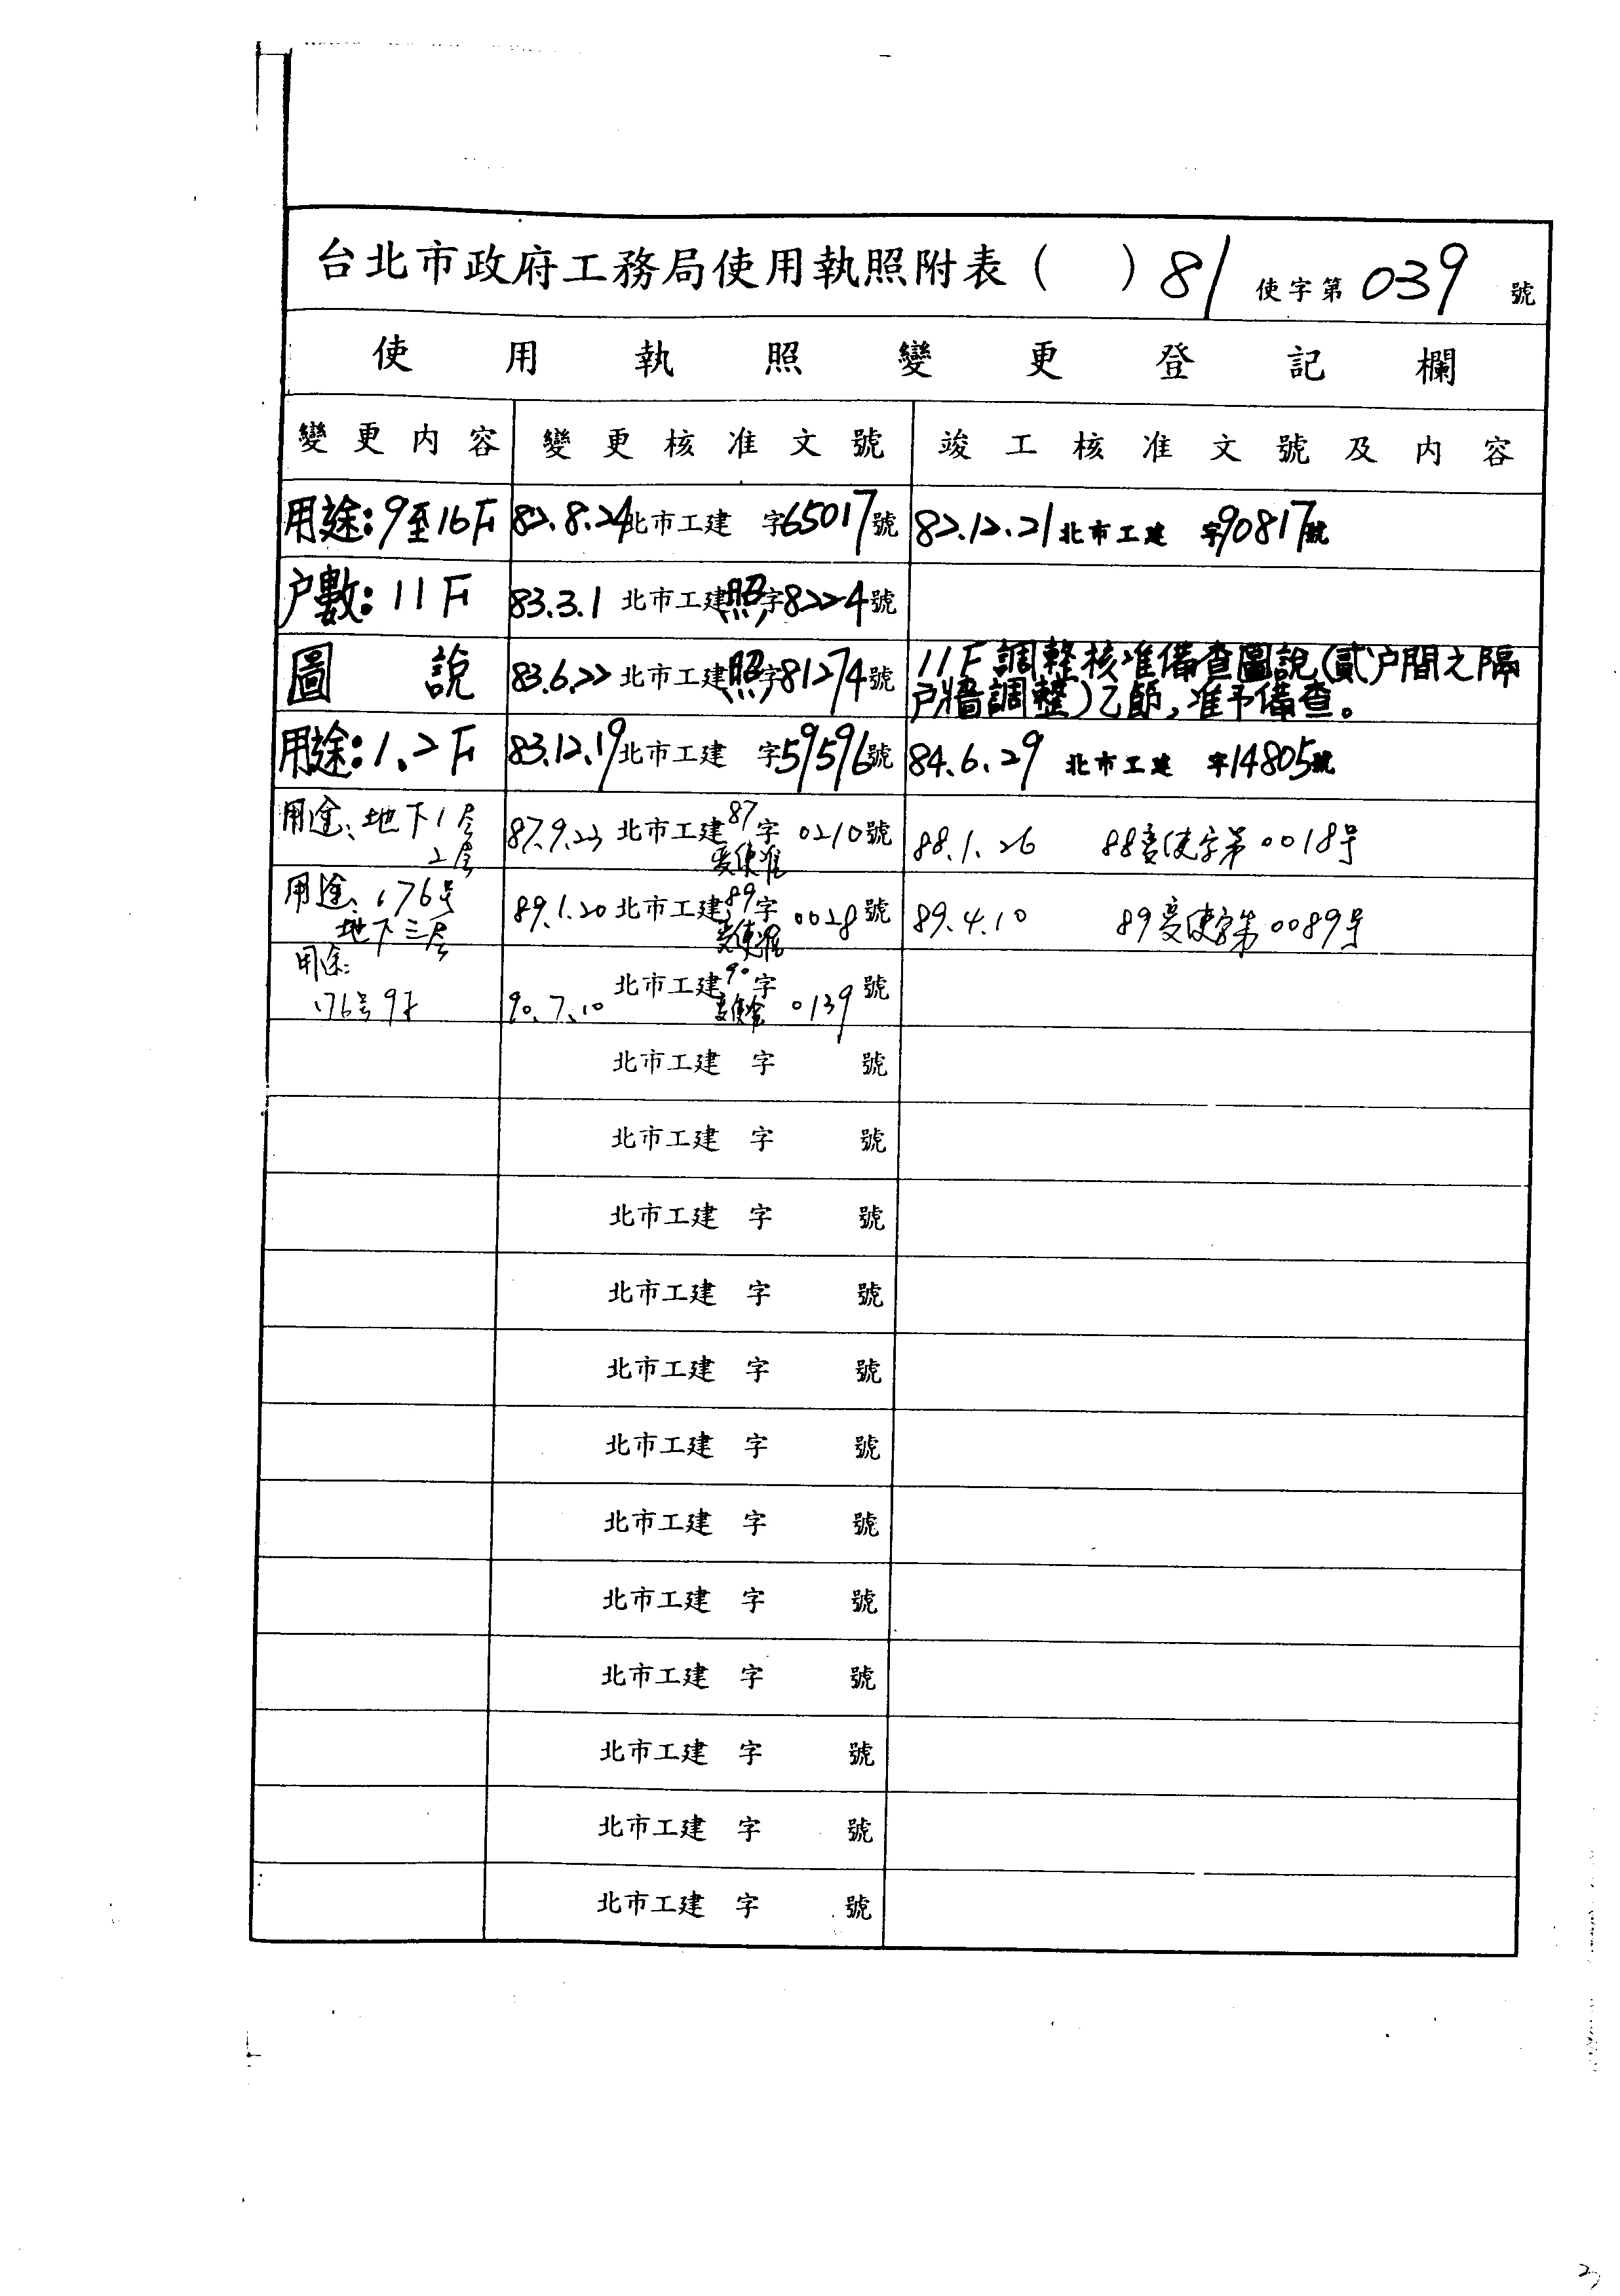 台北市政府工務局使用執照附表（　）81使字第039號
使用執照變更登記欄
變更內容 變更核准文號 竣工核准文號及內容
用途:9至16F 82.8.24北市工建 字65017號 82.12.21北市工建 字90817號
户數:11F 83.3.1北市工建照字8224號
圖說 83.6.22北市工建照字81274號 11F調整核准備查圖說(貳户間之隔
户牆調整)乙節,准予備查。
用途:1.2F 83.12.19北市工建 字59596號 84.6.29北市工建 字14805號
用途:地下1层 87.9.23北市工建87字0210號 88.1.26 88變使字第0018号
2层 變使准
用途:176号 89.1.20北市工建89字0028號 89.4.10 89變使字第0089号
地下三层 變使准
用途: 北市工建90字 號
176号9F 90.7.10 變使 0139
北市工建 字 號
北市工建 字 號
北市工建 字 號
北市工建 字 號
北市工建 字 號
北市工建 字 號
北市工建 字 號
北市工建 字 號
北市工建 字 號
北市工建 字 號
北市工建 字 號
北市工建 字 號